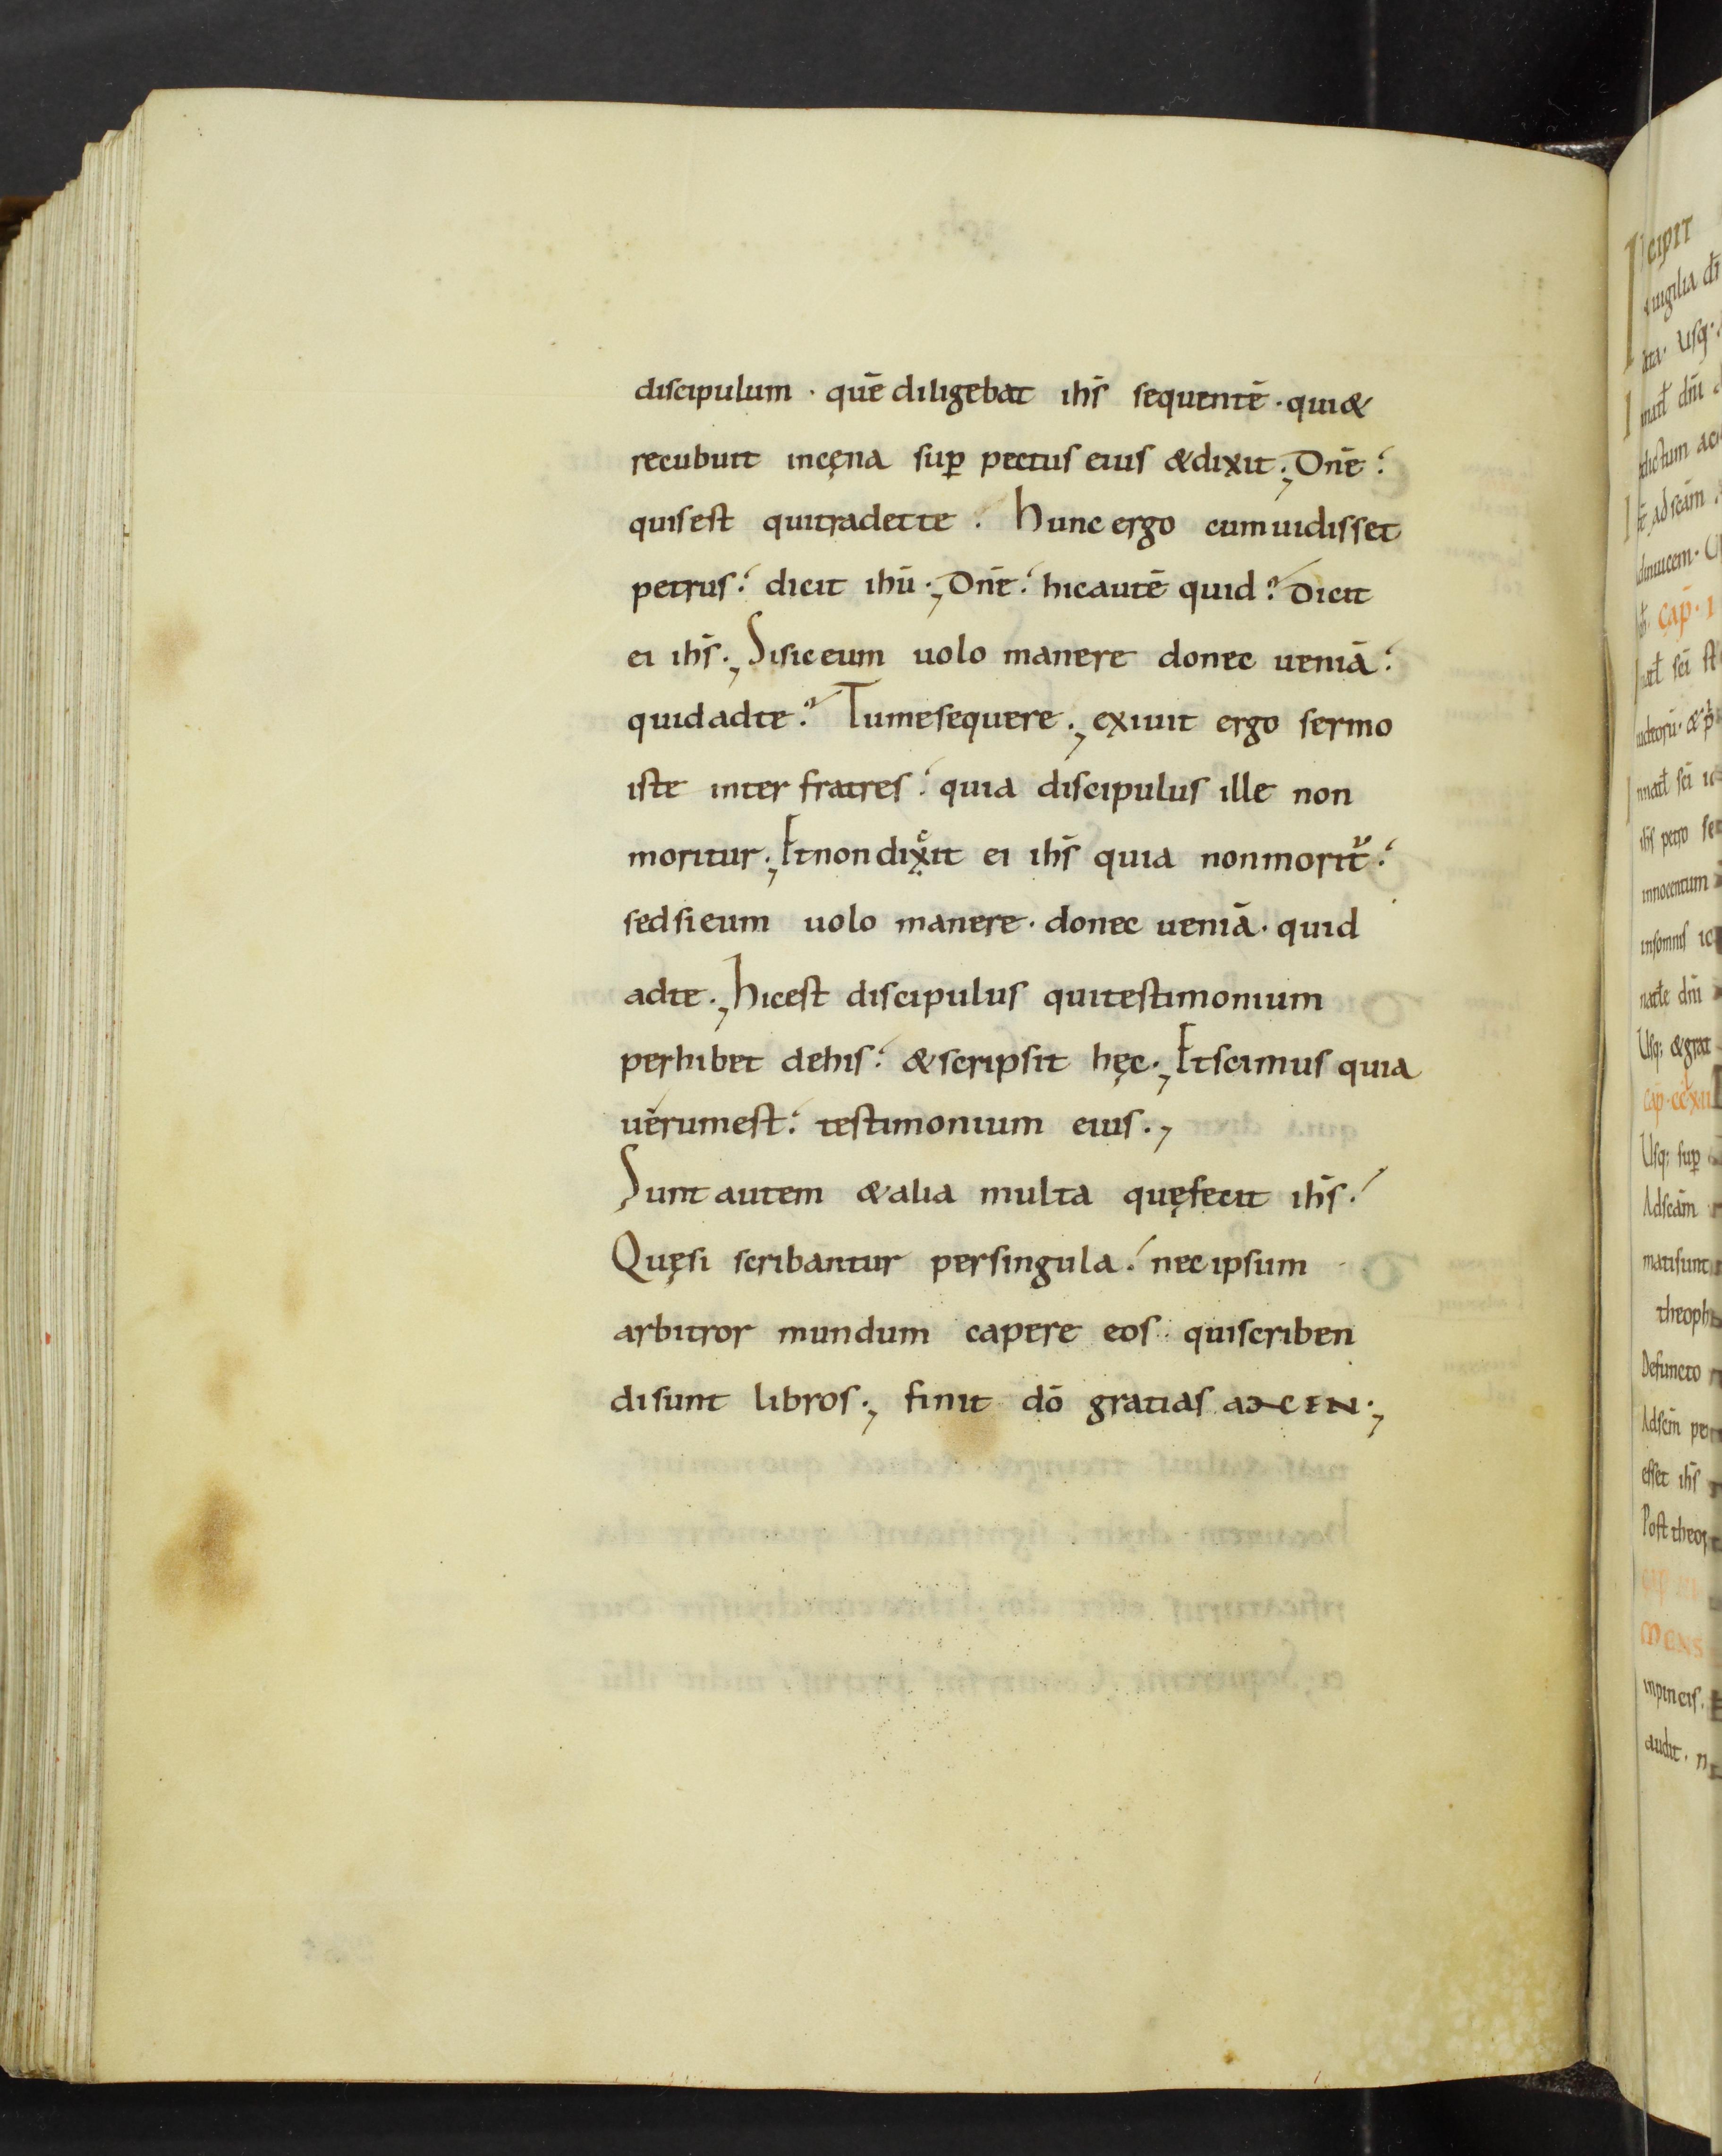 discipulum · quē diligebat ihs̄ sequentē · qui &
recubuit in cęna sup̄ pectus eius & dixit ·, Dn̄e :
quis est qui tradet te : Hunc ergo cum uidisset
petrus : dicit ihū ·, Dn̄e : hic autē quid ? Dicit
ei ihs̄ ·, Si sic eum uolo manere donec ueniā :
quid ad te ? Tu me sequere ·, exiuit ergo sermo
iste inter fratres : quia discipulus ille non
moritur ·, Et non dixit ei ihs̄ quia non morit᷑ :
sed si eum uolo manere · donec ueniā · quid
ad te ·, hic est discipulus qui testimonium
perhibet de his : & scripsit hęc ·, Et scimus quia
uerum est : testimonium eius ·,
Sunt autem & alia multa quę fecit ihs̄ :
Quę si scribantur per singula : nec ipsum
arbitror mundum capere eos · qui scriben
di sunt libros ·, finit dō gratias amen ·,
cipit
uigilia
Usq·
dictum
Cap̄ · I
innocentum
Usq; & grat
Usq; sup̄
Adscām
mati sunt
theoph
Defuncto
esset ihs̄
Post theo
audit ·